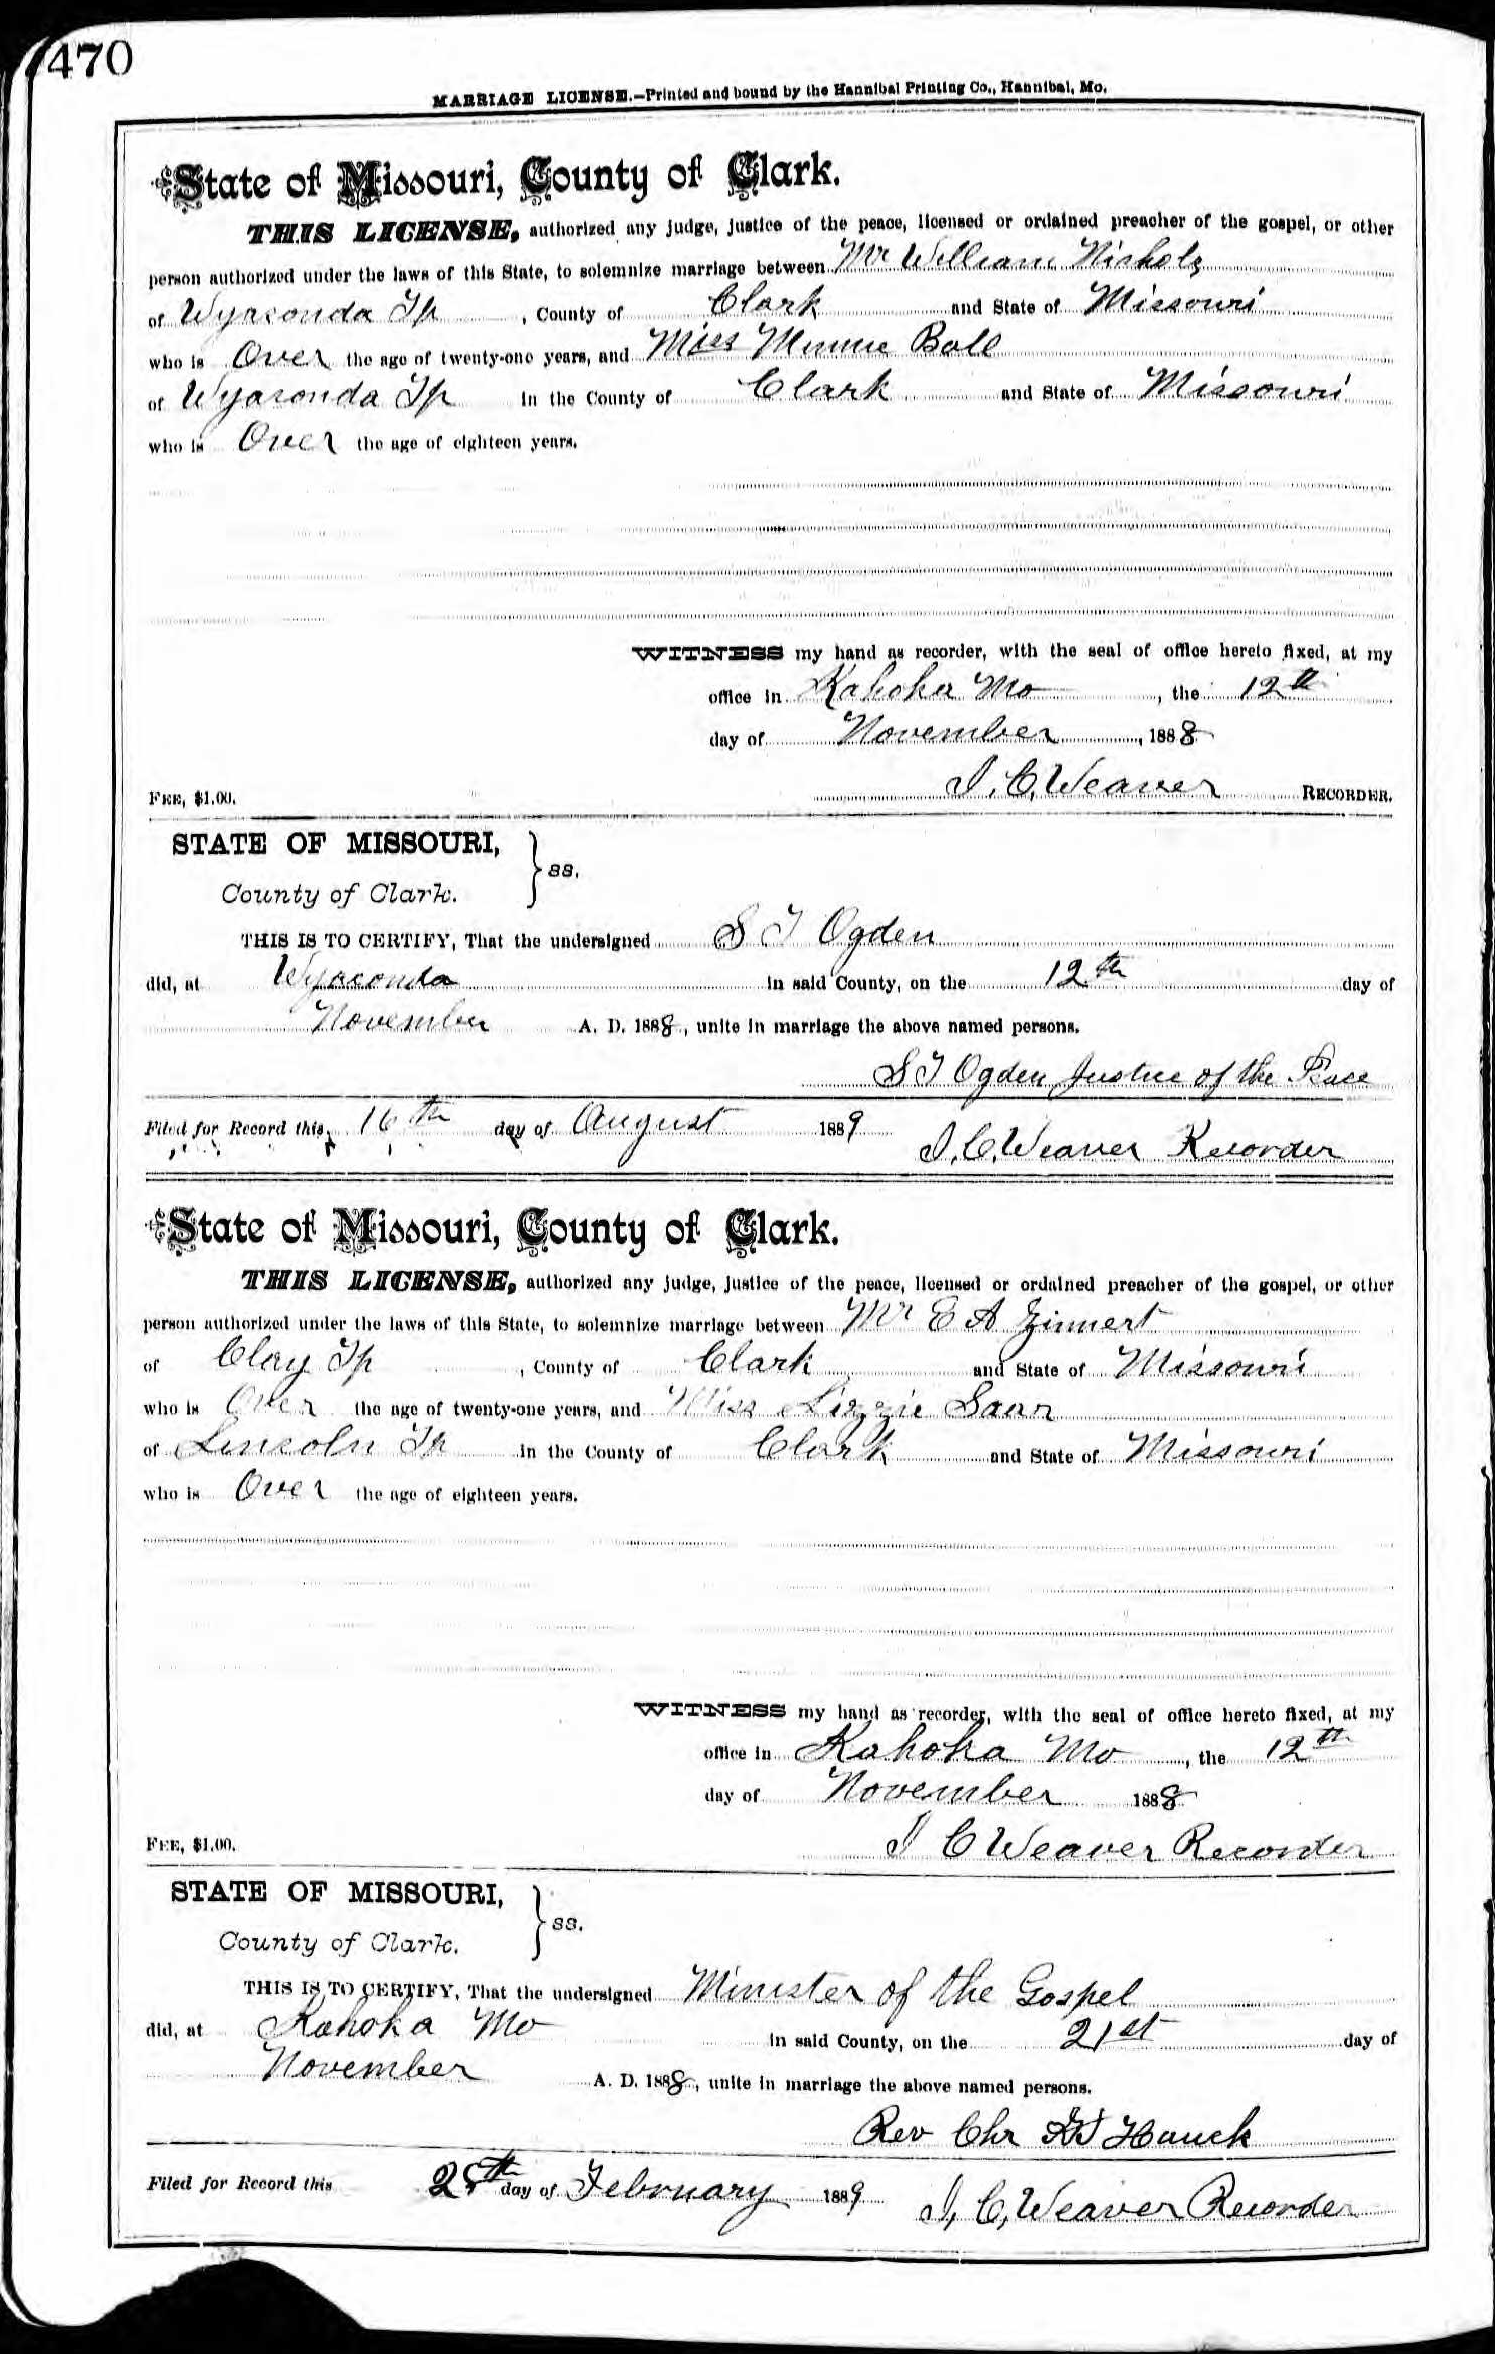 470
MARRIAGE LICENSE.—Printed and bound by the Hannibal Printing Co., Hannibal, Mo.
State of Missouri, County of Clark.
THIS LICENSE, authorized any judge, justice of the peace, licensed or ordained preacher of the gospel, or other
person authorized under the laws of this State, to solemnize marriage between Mr William Nichols
of Wyaconda Tp , County of Clark and State of Missouri
who is Over the age of twenty-one years, and Miss Minnie Ball
of Wyaconda Tp in the County of Clark and State of Missouri
who is Over the age of eighteen years.
WITNESS my hand as recorder, with the seal of office hereto fixed, at my
office in Kahoka Mo , the 12th
day of November , 1888
FEE, $1.00. I. C. Weaver RECORDER.
STATE OF MISSOURI,
County of Clark. } ss.
THIS IS TO CERTIFY, That the undersigned S T Ogden
did, at Wyaconda in said County, on the 12th day of
November A. D. 1888, unite in marriage the above named persons.
S T Ogden Justice of the Peace
Filed for Record this 16th day of August 1889 I. C. Weaver Recorder
State of Missouri, County of Clark.
THIS LICENSE, authorized any judge, justice of the peace, licensed or ordained preacher of the gospel, or other
person authorized under the laws of this State, to solemnize marriage between Mr E A Zinnert
of Clay Tp , County of Clark and State of Missouri
who is Over the age of twenty-one years, and Miss Lizzie Saar
of Lincoln Tp in the County of Clark and State of Missouri
who is Over the age of eighteen years.
WITNESS my hand as recorder, with the seal of office hereto fixed, at my
office in Kahoka Mo , the 12th
day of November 1888
FEE, $1.00. I C Weaver Recorder
STATE OF MISSOURI,
County of Clark. } ss.
THIS IS TO CERTIFY, That the undersigned Minister of the Gospel
did, at Kahoka Mo in said County, on the 21st day of
November A. D. 1888, unite in marriage the above named persons.
Rev Chr Hauck
Filed for Record this 28th day of February 1889 I. C. Weaver Recorder